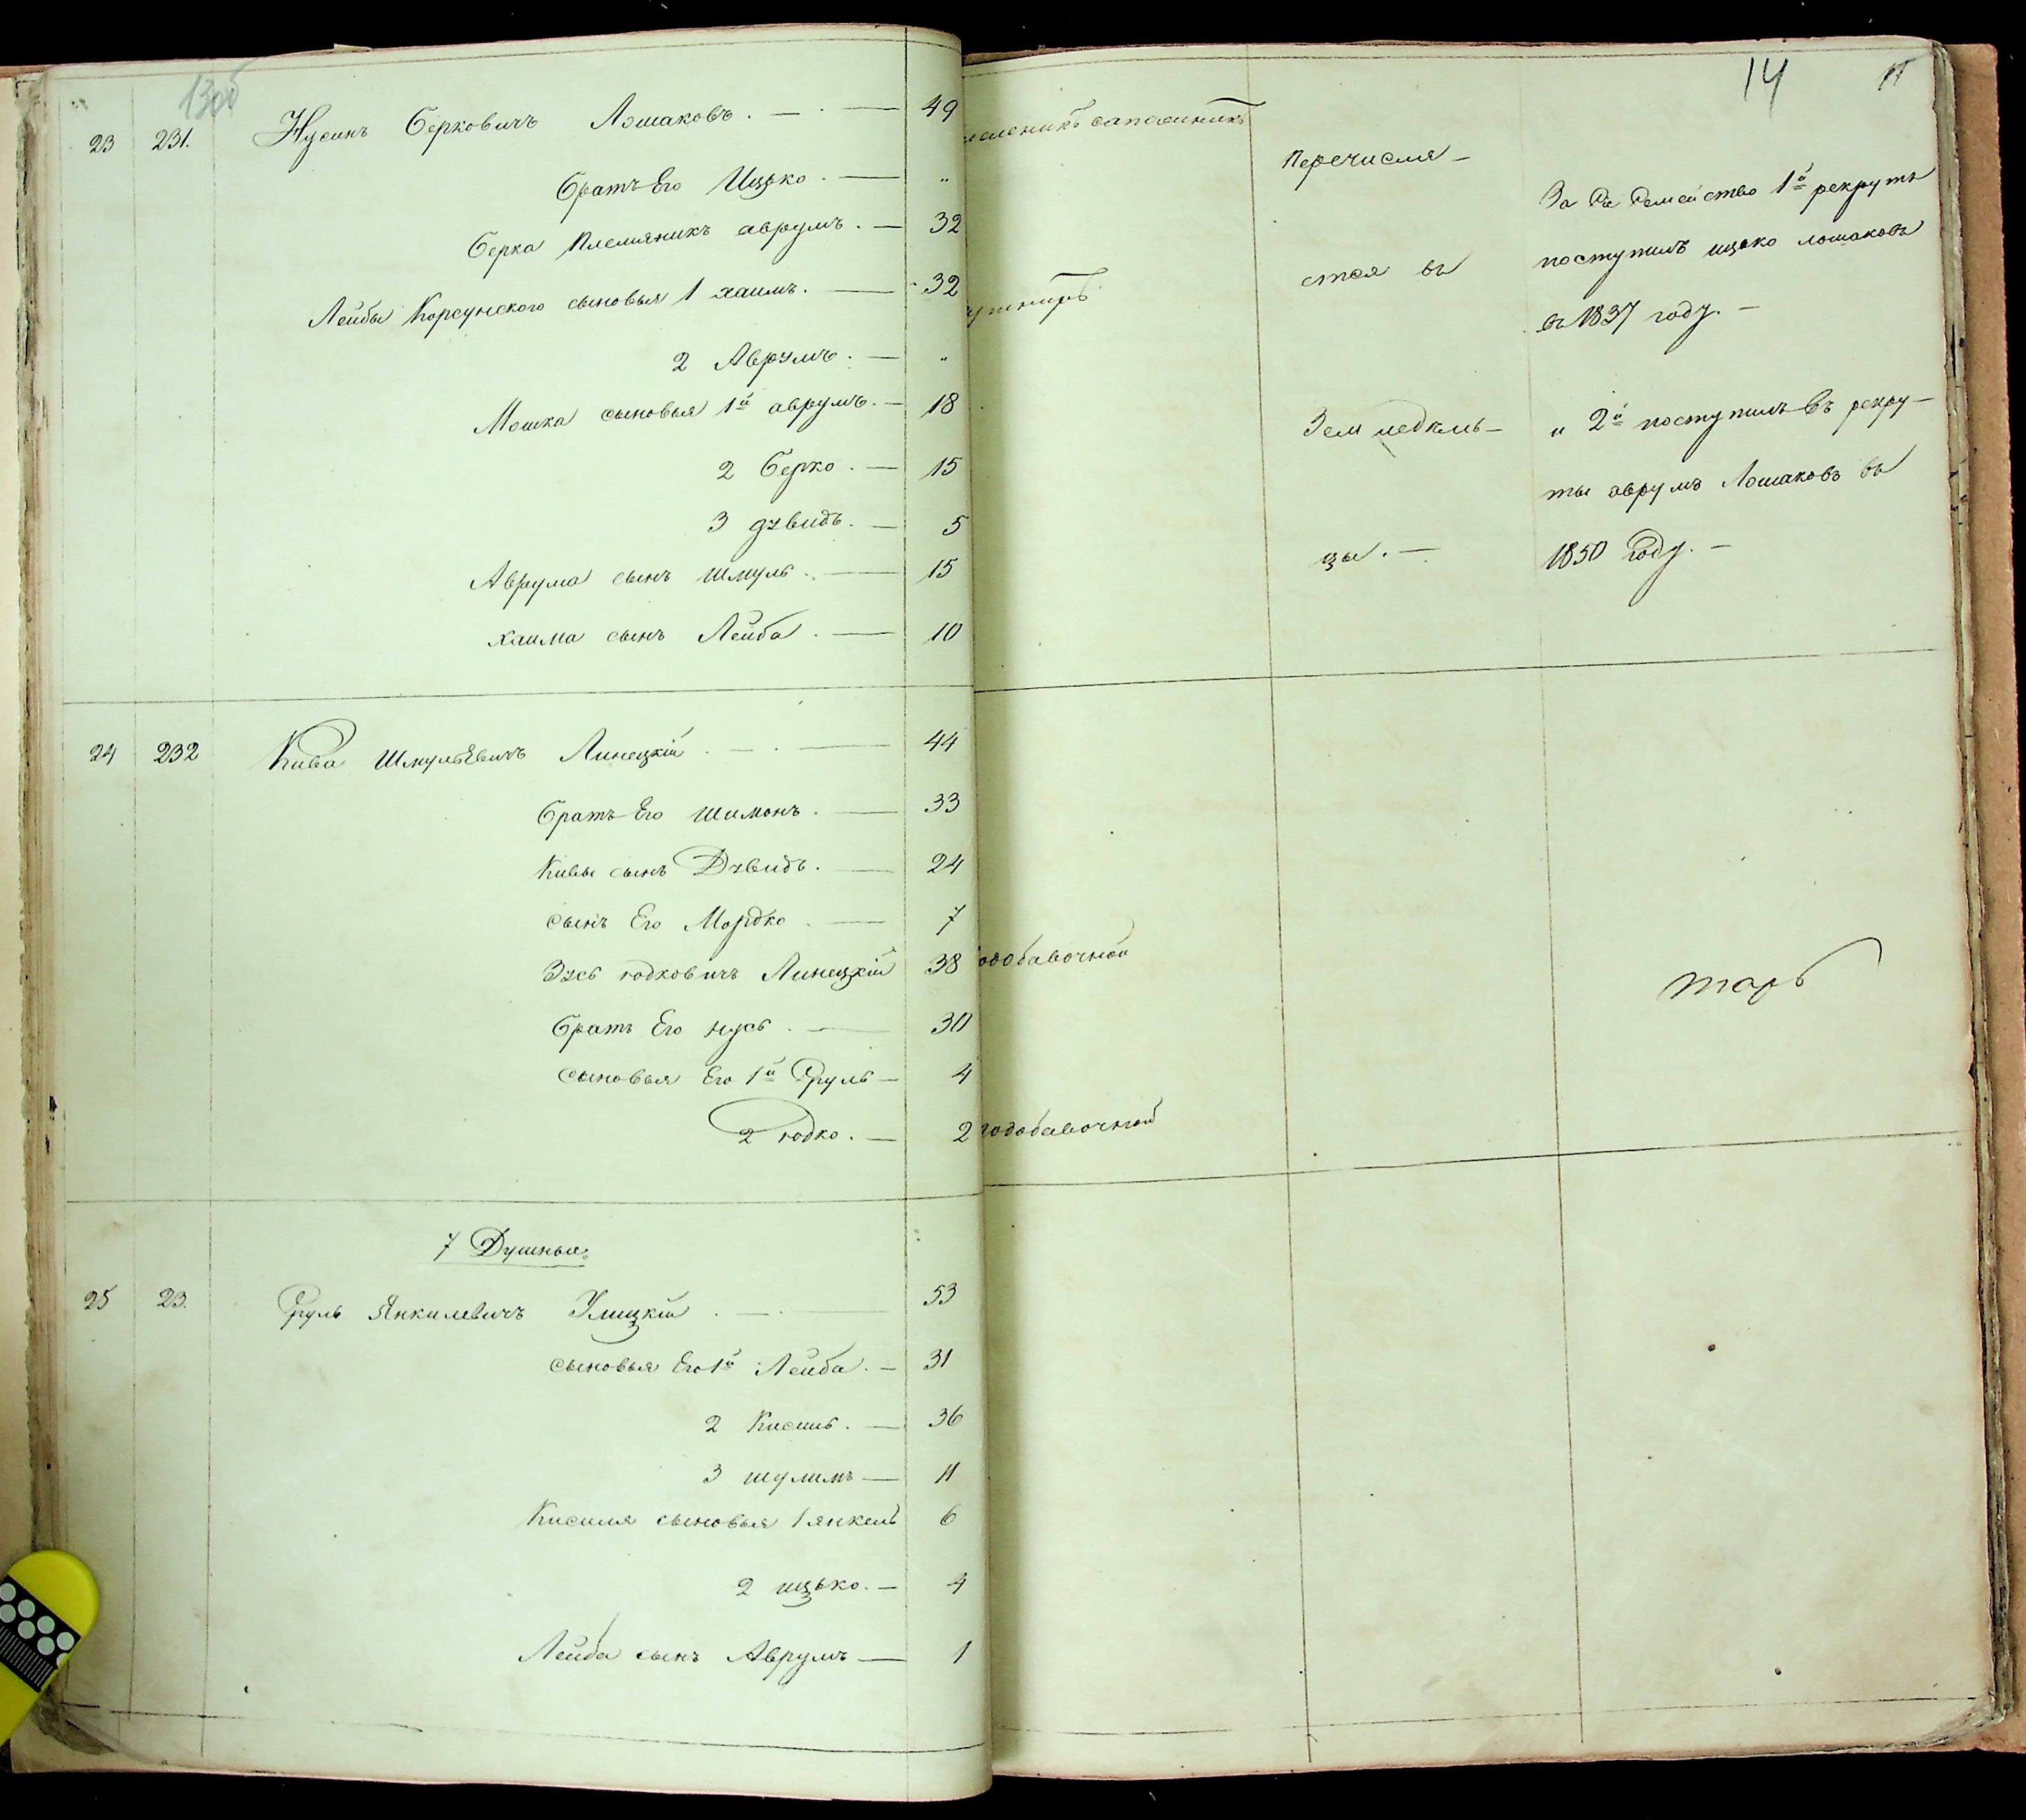 13об
23 231. Нусинъ Берковичъ Лошаковъ. — 49
братъ Его Ицько. — "
Берка племяникъ аврумъ. — 32
Лейбы Корсунского сыновья 1 хаимъ. — 32
2 Аврумъ. — "
Мошка сыновья 1й аврумъ. — 18
2 Берко. — 15
3 дувидъ. — 5
Аврума сынъ шмуль. — 15
хаима сынъ Лейба. — 10
24 232 Кива Шмульевичъ Линецкій. — 44
братъ Его шимонъ. — 33
Кивы сынъ Дувидъ. — 24
сынъ Его Мордко — 7
Зусь юдковичъ Линецкій 38
братъ Его нусь. — 30
сыновья Его 1й Сруль — 4
2 юдко. — 2
7 Душныя.
25 23. Сруль Янкилевичъ Улицкій. — 53
сыновья Его 1й Лейба. — 31
2 Кисиль. — 36
3 шулимъ — 11
Кисиля сыновья 1 янкель 6
2 ицько. — 4
Лейба сынъ Аврумъ — 1
14
сапожникъ
Перечисля-
стся въ
Земледѣль-
цы. —
За се семейство 1й рекрутъ
поступилъ ицько лошаковъ
въ 1837 году. —
и 2й поступилъ въ рекру-
ты аврумъ Лошаковъ въ
1850 Году. —
одобавочной
тарь
одобавочной